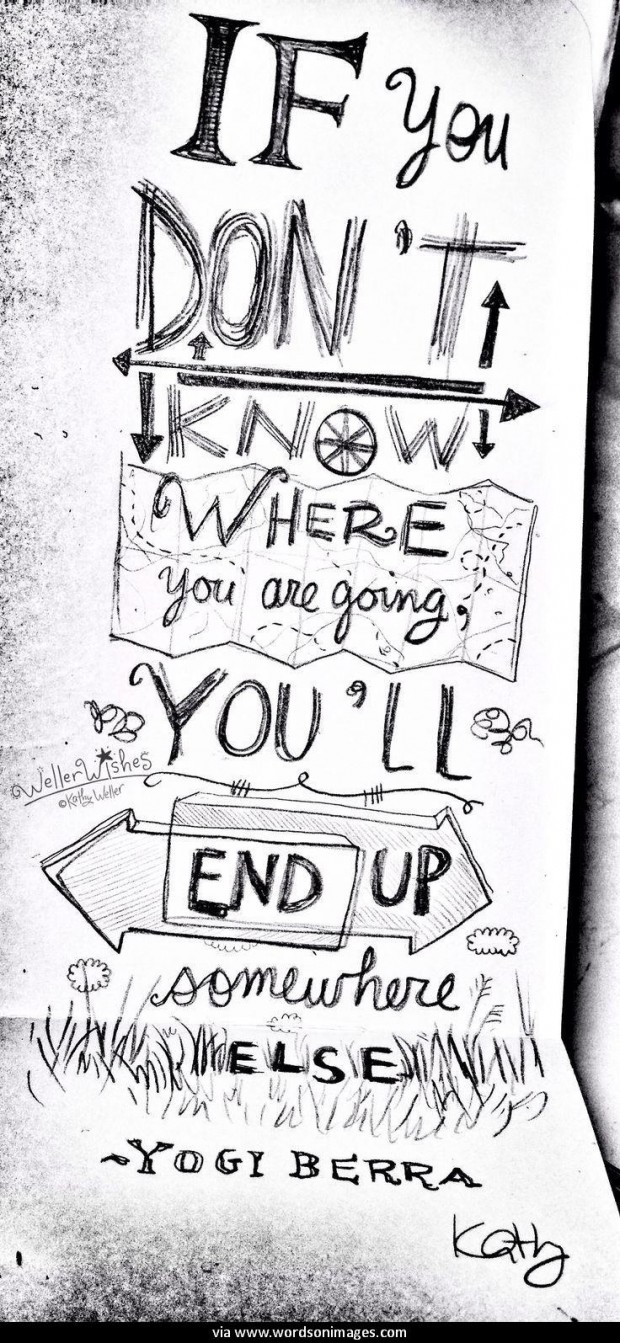 IF you
DON'T
KNOW
WHERE
you are going,
YOU'LL
WellerWishes
©Kathy Weller
END UP
somewhere
ELSE
~YOGI BERRA
Kathy
via www.wordsonimages.com